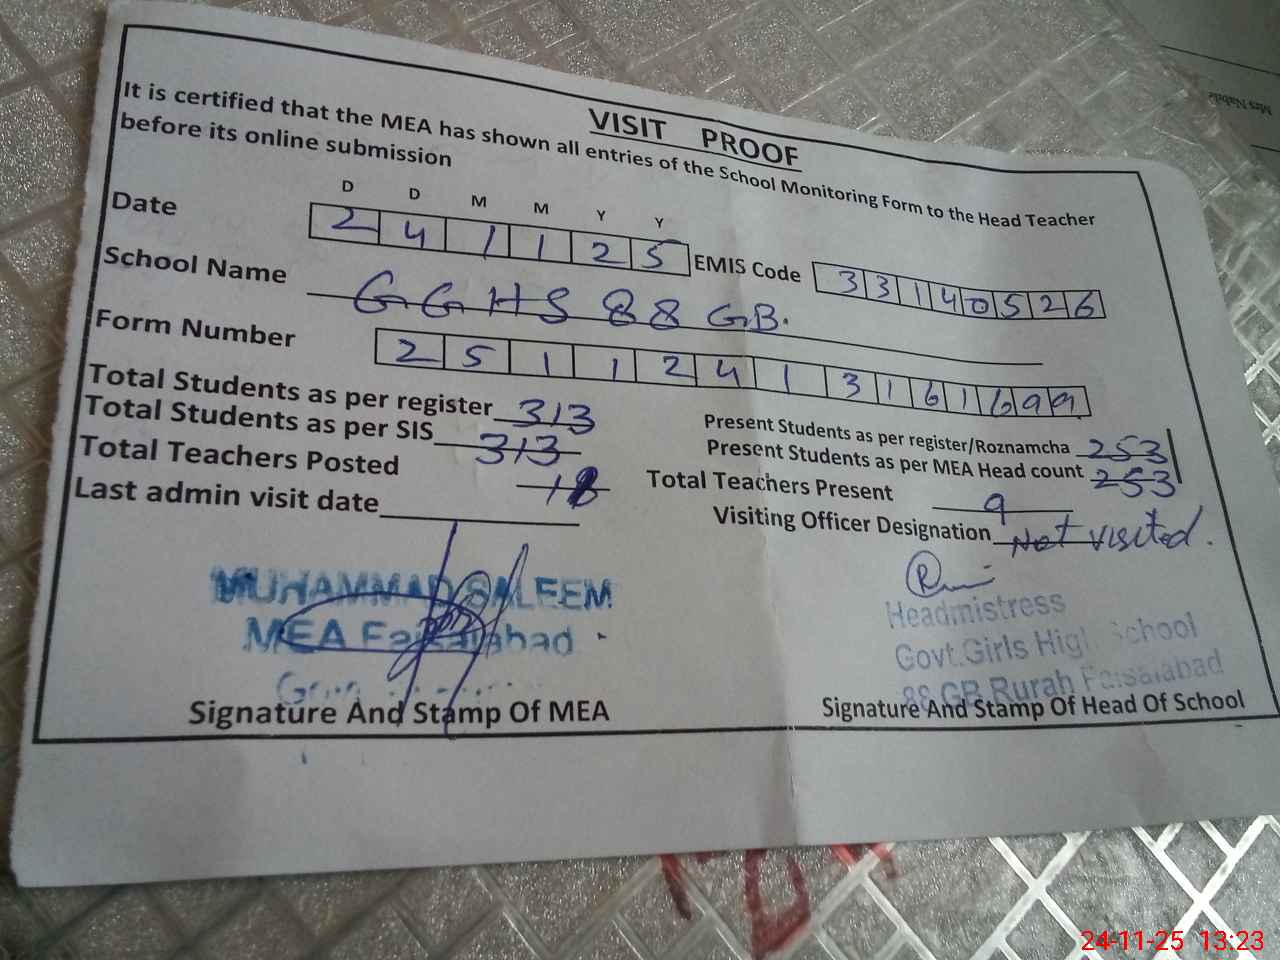 VISIT PROOF
It is certified that the MEA has shown all entries of the School Monitoring Form to the Head Teacher
before its online submission
D D M M Y Y
Date 2 4 1 1 2 5 EMIS Code 3 3 1 4 0 5 2 6
School Name G G H S 88 GB.
Form Number 2 5 1 1 2 4 1 3 1 6 1 6 9 9
Total Students as per register 313 Present Students as per register/Roznamcha 253
Total Students as per SIS 313 Present Students as per MEA Head count 253
Total Teachers Posted 18 Total Teachers Present 9
Last admin visit date Visiting Officer Designation Not visited.
MUHAMMAD SALEEM
MEA Faisalabad
Headmistress
Govt.Girls High School
88 GB Rurah Faisalabad
Signature And Stamp Of MEA Signature And Stamp Of Head Of School
24-11-25 13:23